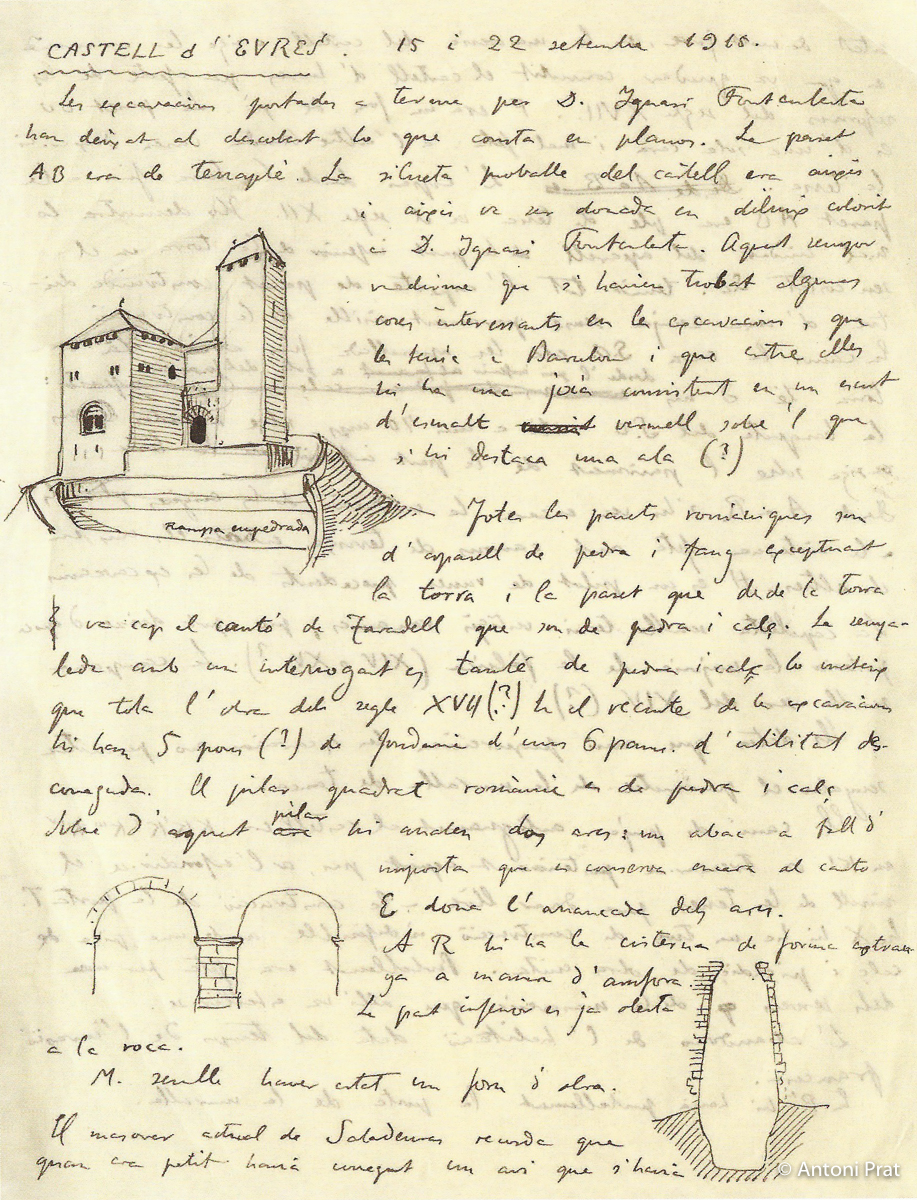 CASTELL d' EURES. 15 i 22 setembre 1918.
Les excavacions portades a terme per D. Ignasi Fontcuberta
han deixat al descobert lo que consta en planos. La paret
AB era de terraplè. La silueta probable del castell era aixís
i aixís va ser donada en dibuix colorit
a D. Ignasi Fontcuberta. Aquest senyor
va dirme que s'havien trobat algunes
coses interessants en les excavacions, que
les tenía a Barcelona i que entre elles
hi ha una joia consistent en un escut
d'esmalt vermell sobre'l que
s'hi destaca una ala (?)
Rampa empedrada
Totes les parets romàniques son
d'aparell de pedra i fang exceptuat
la torra i la paret que desde la torra
va cap el cantó de Taradell que son de pedra i calç. La senya-
lada amb un interrogant es també de pedra i calç lo mateix
que tota l'obra dels segle XVII (?) En el recinte de les excavacions
hi han 5 pous (?) de fondaria d'uns 6 pams. d'utilitat des-
coneguda. El pilar quadrat romànic es de pedra i calç
Sobre d'aquet pilar hi anaven dos arcs: un abac a tall d'
imposta que es conserva encara al canto
E dona l'arrancada dels arcs.
A R hi ha la cisterna de forma extran-
ya a manera d'amfora
La part inferior es ja oberta
a la roca.
M. sembla haver estat un forn d'obra.
El masover actual de Saladeures recorda que
quan era petit havía conegut un avi que s'havía
© Antoni Prat